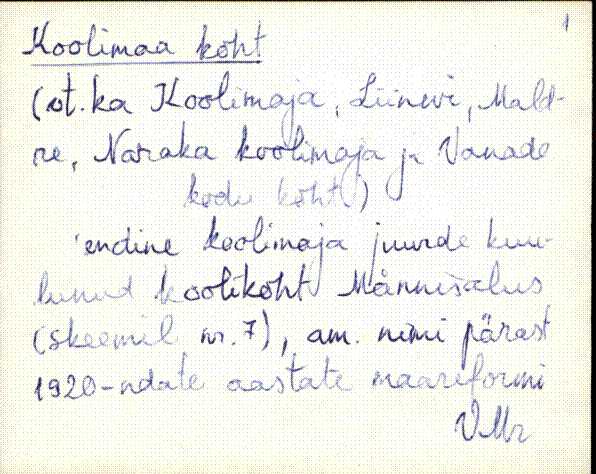 1
Koolimaa koht
(vt. ka Koolimaja, Liinevi, Mald-
re, Naraka koolimaja ja Vanade
kodu koht)
endine koolimaja juurde kuu-
lunud koolikoht Männisalus
(skeemil nr. 7), am. nimi pärast
1920-ndate aastate maareformi
VMr